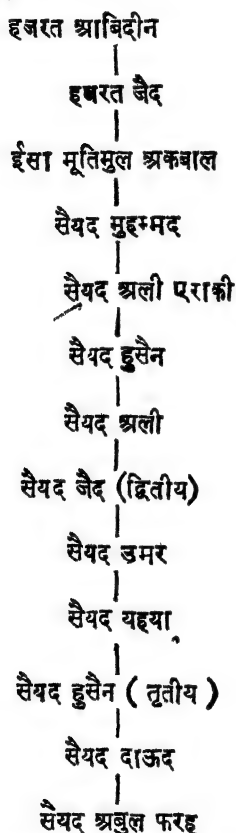 हजरत आबिदीन
हजरत जैद
ईसा मूतिमुल अकबाल
सैयद मुहम्मद
सैयद अली एराकी
सैयद हुसैन
सैयद अली
सैयद जैद (द्वितीय)
सैयद उमर
सैयद यहया
सैयद हुसैन ( तृतीय )
सैयद दाऊद
सैयद अबुल फरह